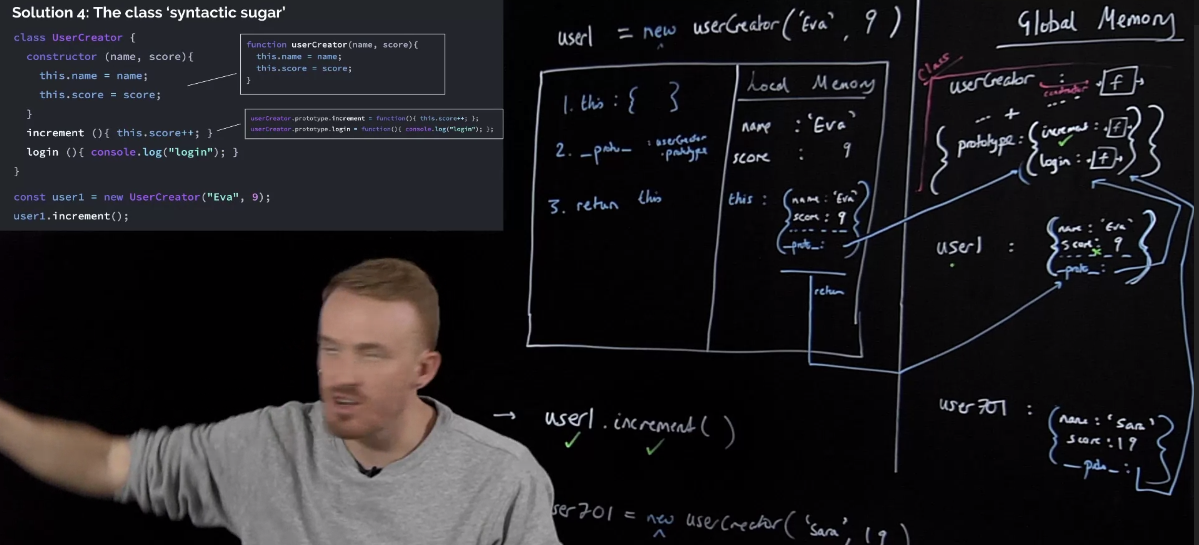 Solution 4: The class ‘syntactic sugar’
class UserCreator {
constructor (name, score){
this.name = name;
this.score = score;
}
increment (){ this.score++; }
login (){ console.log("login"); }
}
const user1 = new UserCreator("Eva", 9);
user1.increment();
function userCreator(name, score){
this.name = name;
this.score = score;
}
userCreator.prototype.increment = function(){ this.score++; };
userCreator.prototype.login = function(){ console.log("login"); };
user1 = new userCreator('Eva', 9)
1. this : { }
2. __proto__ : userCreator
.prototype
3. return this
Local Memory
name : 'Eva'
score : 9
this : { name : 'Eva'
score : 9
__proto__ : }
return
→ user1.increment()
user701 = new userCreator('Sara', 19)
Global Memory
Class
userCreator : f
constructor
+
{ prototype : { increment : f
login : f } }
user1 : { name : 'Eva'
score : 9
__proto__ : }
user701 : { name : 'Sara'
score : 19
__proto__ : }